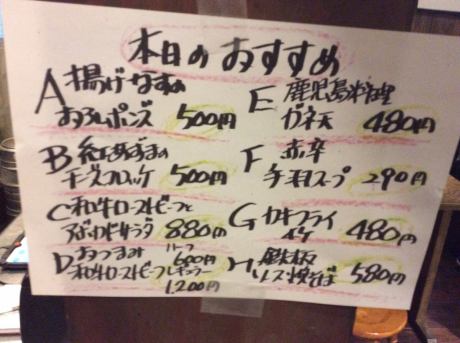 本日のおすすめ
A 揚げなすの
おろしポンズ 500円
B 紅あずまの
チーズコロッケ 500円
C 和牛ローストビーフと
アボカドサラダ 880円
D おつまみ ハーフ 600円
和牛ローストビーフ レギュラー
1,200円
E 鹿児島料理
ガネ天 480円
F 赤辛
手羽スープ 290円
G カキフライ
480円
H 鉄板
ソース焼そば 580円